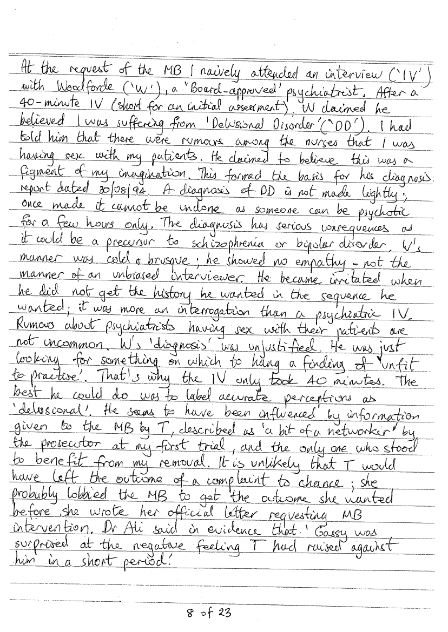 At the request of the MB I naively attended an interview ('IV')
with Woodforde ('W'), a 'Board-approved' psychiatrist. After a
40-minute IV (short for an initial assessment), W claimed he
believed I was suffering from 'Delusional Disorder' ('DD'). I had
told him that there were rumours among the nurses that I was
having sex with my patients. He claimed to believe this was a
figment of my imagination. This formed the basis for his diagnosis,
report dated 30/08/92. A diagnosis of DD is not made lightly;
once made it cannot be undone as someone can be psychotic
for a few hours only. The diagnosis has serious consequences as
it could be a precursor to schizophrenia or bipolar disorder. W's
manner was cold & brusque; he showed no empathy - not the
manner of an unbiased interviewer. He became irritated when
he did not get the history he wanted in the sequence he
wanted; it was more an interrogation than a psychiatric IV.
Rumours about psychiatrists having sex with their patients are
not uncommon. W's 'diagnosis' was unjustified. He was just
looking for something on which to hang a finding of 'unfit
to practise'. That's why the IV only took 40 minutes. The
best he could do was to label accurate perceptions as
'delusional'. He seems to have been influenced by information
given to the MB by T, described as 'a bit of a networker' by
the prosecutor at my first trial, and the only one who stood
to benefit from my removal. It is unlikely that T would
have left the outcome of a complaint to chance; she
probably lobbied the MB to get the outcome she wanted
before she wrote her official letter requesting MB
intervention. Dr Ali said in evidence that 'Gassy was
surprised at the negative feeling T had raised against
him in a short period.'
8 of 23